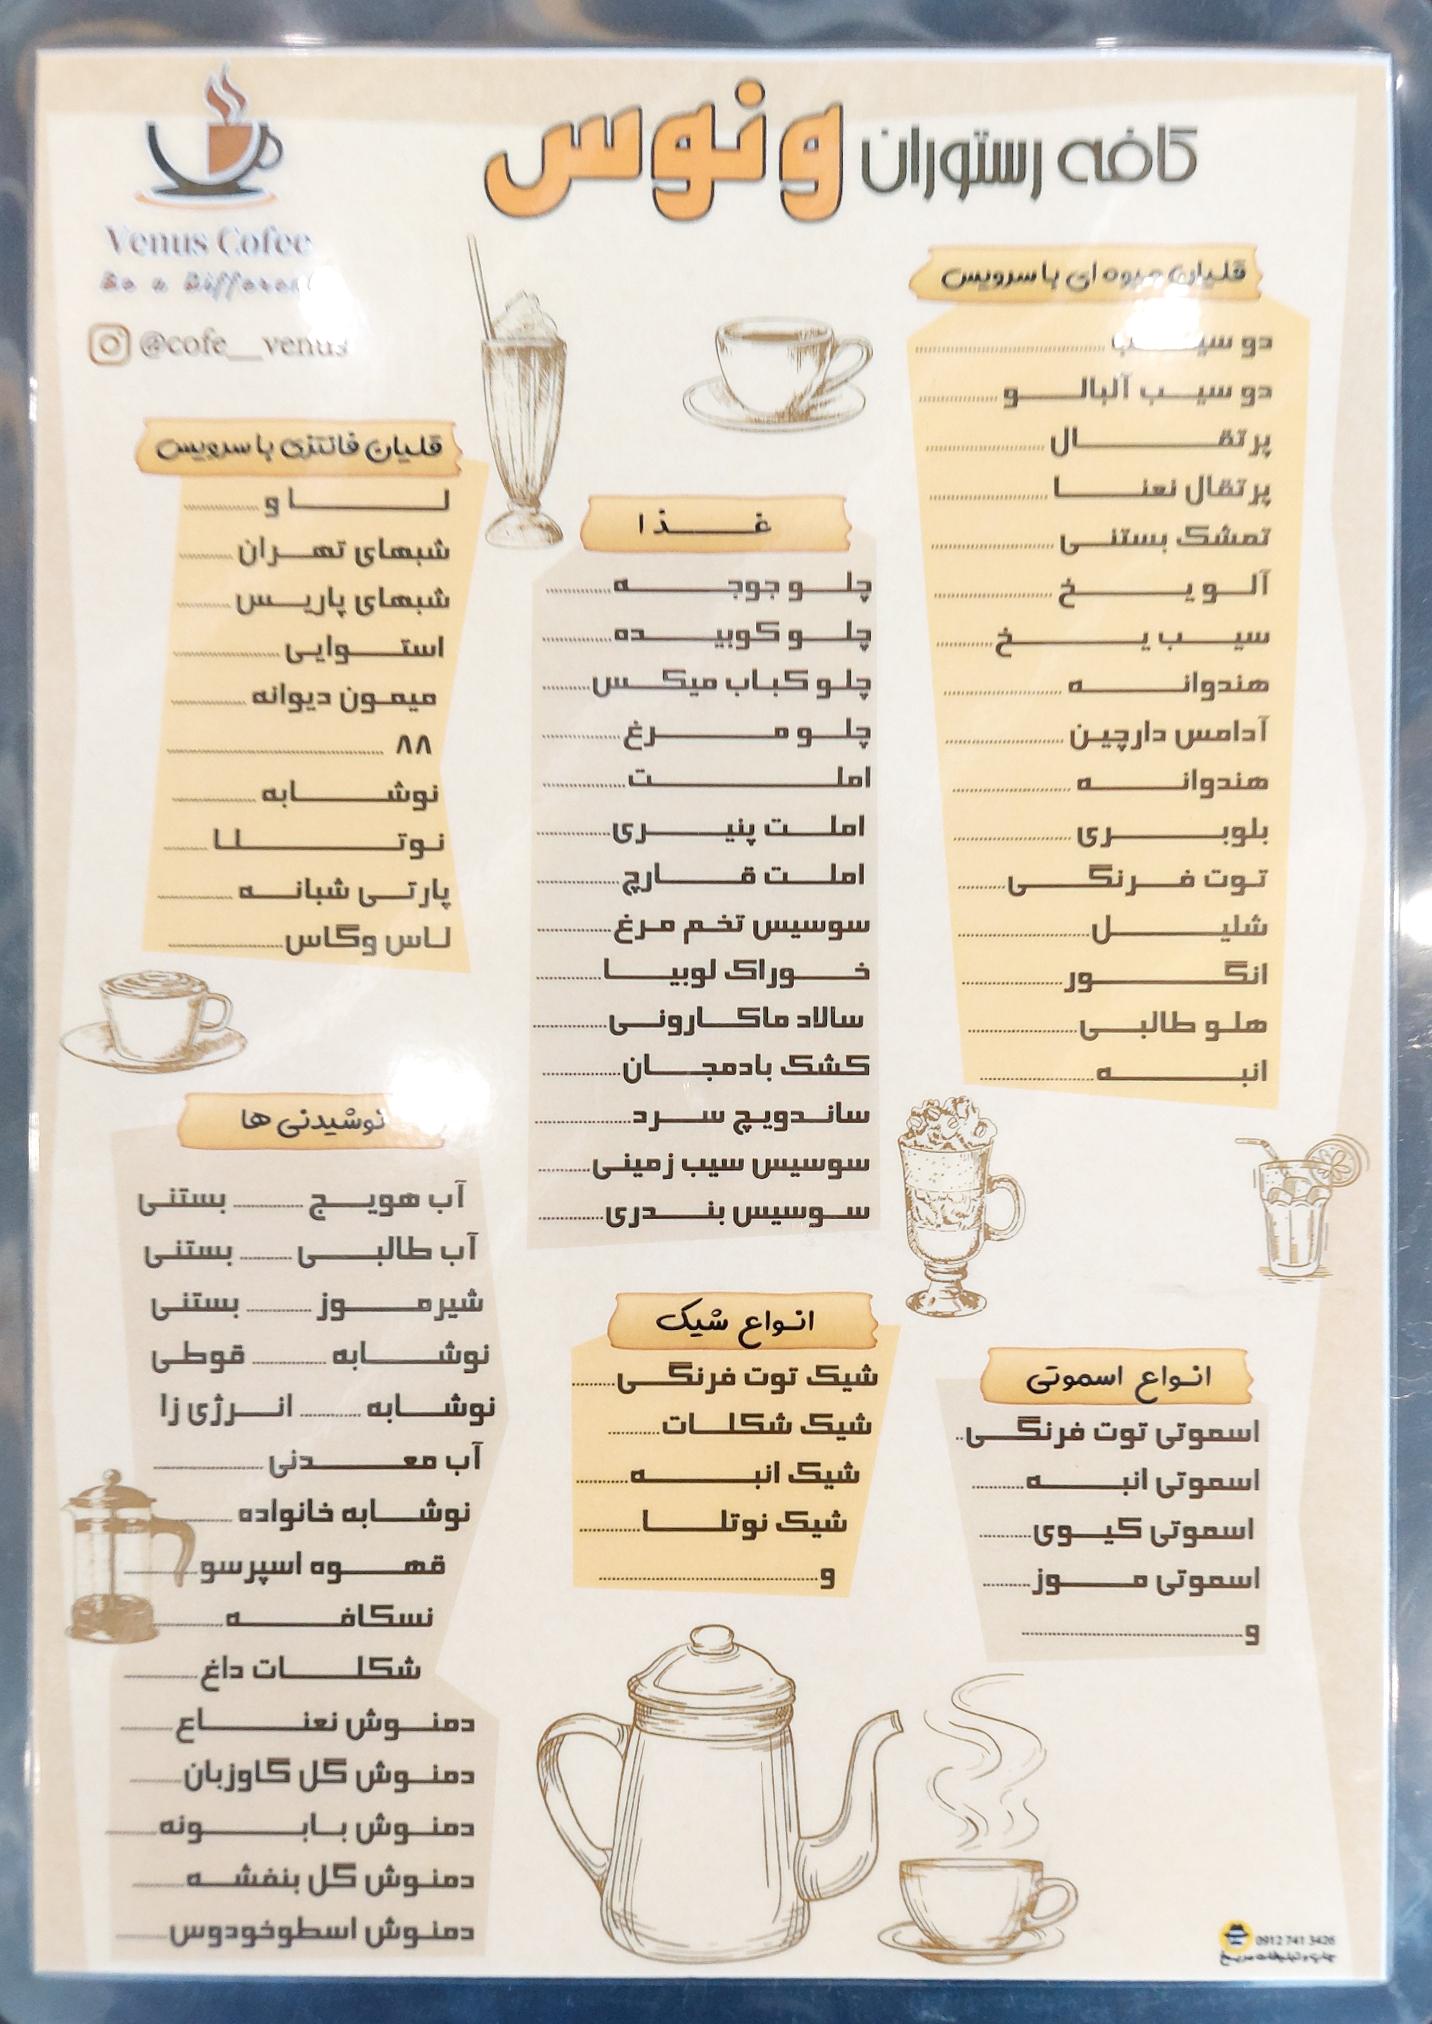 کافه رستوران ونوس
Venus Cofee
Be a Different
@cofe__venus
قلیان میوه ای با سرویس
دو سیب
دو سیب آلبالو
پرتقال
پرتقال نعنا
تمشک بستنی
آلو یخ
سیب یخ
هندوانه
آدامس دارچین
هندوانه
بلوبری
توت فرنگی
شلیل
انگور
هلو طالبی
انبه
قلیان فانتزی با سرویس
لاو
شبهای تهران
شبهای پاریس
استوایی
میمون دیوانه
۸۸
نوشابه
نوتلا
پارتی شبانه
لاس وگاس
غذا
چلو جوجه
چلو کوبیده
چلو کباب میکس
چلو مرغ
املت
املت پنیری
املت قارچ
سوسیس تخم مرغ
خوراک لوبیا
سالاد ماکارونی
کشک بادمجان
ساندویچ سرد
سوسیس سیب زمینی
سوسیس بندری
نوشیدنی ها
آب هویج ........ بستنی
آب طالبی ........ بستنی
شیرموز ........ بستنی
نوشابه ........ قوطی
نوشابه ........ انرژی زا
آب معدنی
نوشابه خانواده
قهوه اسپرسو
نسکافه
شکلات داغ
دمنوش نعناع
دمنوش گل گاوزبان
دمنوش بابونه
دمنوش گل بنفشه
دمنوش اسطوخودوس
انواع شیک
شیک توت فرنگی
شیک شکلات
شیک انبه
شیک نوتلا
و
انواع اسموتی
اسموتی توت فرنگی
اسموتی انبه
اسموتی کیوی
اسموتی موز
و
0912 741 3426
چاپ و تبلیغات مریخ